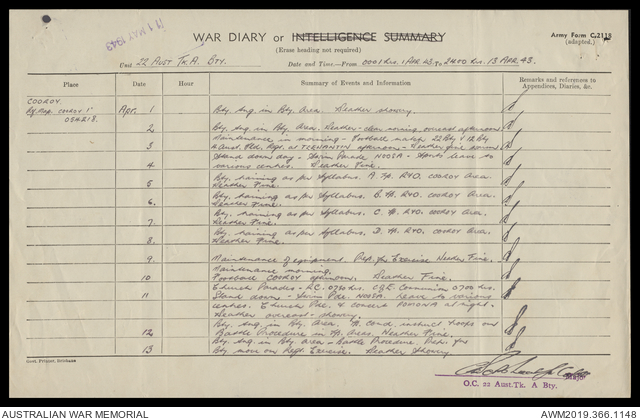 11 MAY 1943
WAR DIARY or INTELLIGENCE SUMMARY
Army Form C.2118
(adapted.)
(Erase heading not required)
Unit 22 AUST TK A. BTY. Date and Time—From 0001 hrs. 1 APR 43. To 2400 hrs. 13 APR, 43.
Place Date Hour Summary of Events and Information Remarks and references to Appendices, Diaries, &c.
COOROY
Ref Map COOROY 1"
054218.
Apr. 1 Bty. trg. in Bty Area. Weather showery.
2 Bty trg. in Bty. Area. Weather - clear morning overcast afternoon
3 Maintenance in morning - Football match 22 Bty v 12 Bty
4 Aust. Fld. Regt. at afternoon - Weather fine
4. Stand down day - Swim Parade NOOSA - leave to
various centres. Weather Fine.
5 Bty. training as per Syllabus. A. Tp. COOROY Area.
Weather Fine.
6. Bty. training as per Syllabus. B. Tp. COOROY Area.
Weather Fine.
7. Bty. training as per Syllabus. C. Tp. COOROY Area.
Weather Fine.
8. Bty. training as per Syllabus. D. Tp. COOROY Area.
Weather Fine.
9. Maintenance of equipment. Prep. for Exercise Weather Fine.
10 Maintenance morning.
Football COOROY afternoon. Weather Fine.
11 Church Parades - R.C. 0730 hrs. C of E. Communion 0700 hrs.
Stand down - Swim Pde. NOOSA. Leave to various
centres. Church Pde. & concert POMONA at night.
Weather overcast - showery.
12 Bty. trg. in Bty. Area. Tp. Comd. instruct troops on
Battle Procedure in Tp. Areas. Weather Fine.
13 Bty. trg. in Bty. area - Battle Procedure. Prep. for
Bty move on Regt. Exercise. Weather Showery.
Govt. Printer, Brisbane
Major
O.C. 22 Aust. Tk. A Bty.
AUSTRALIAN WAR MEMORIAL
AWM2019.366.1148